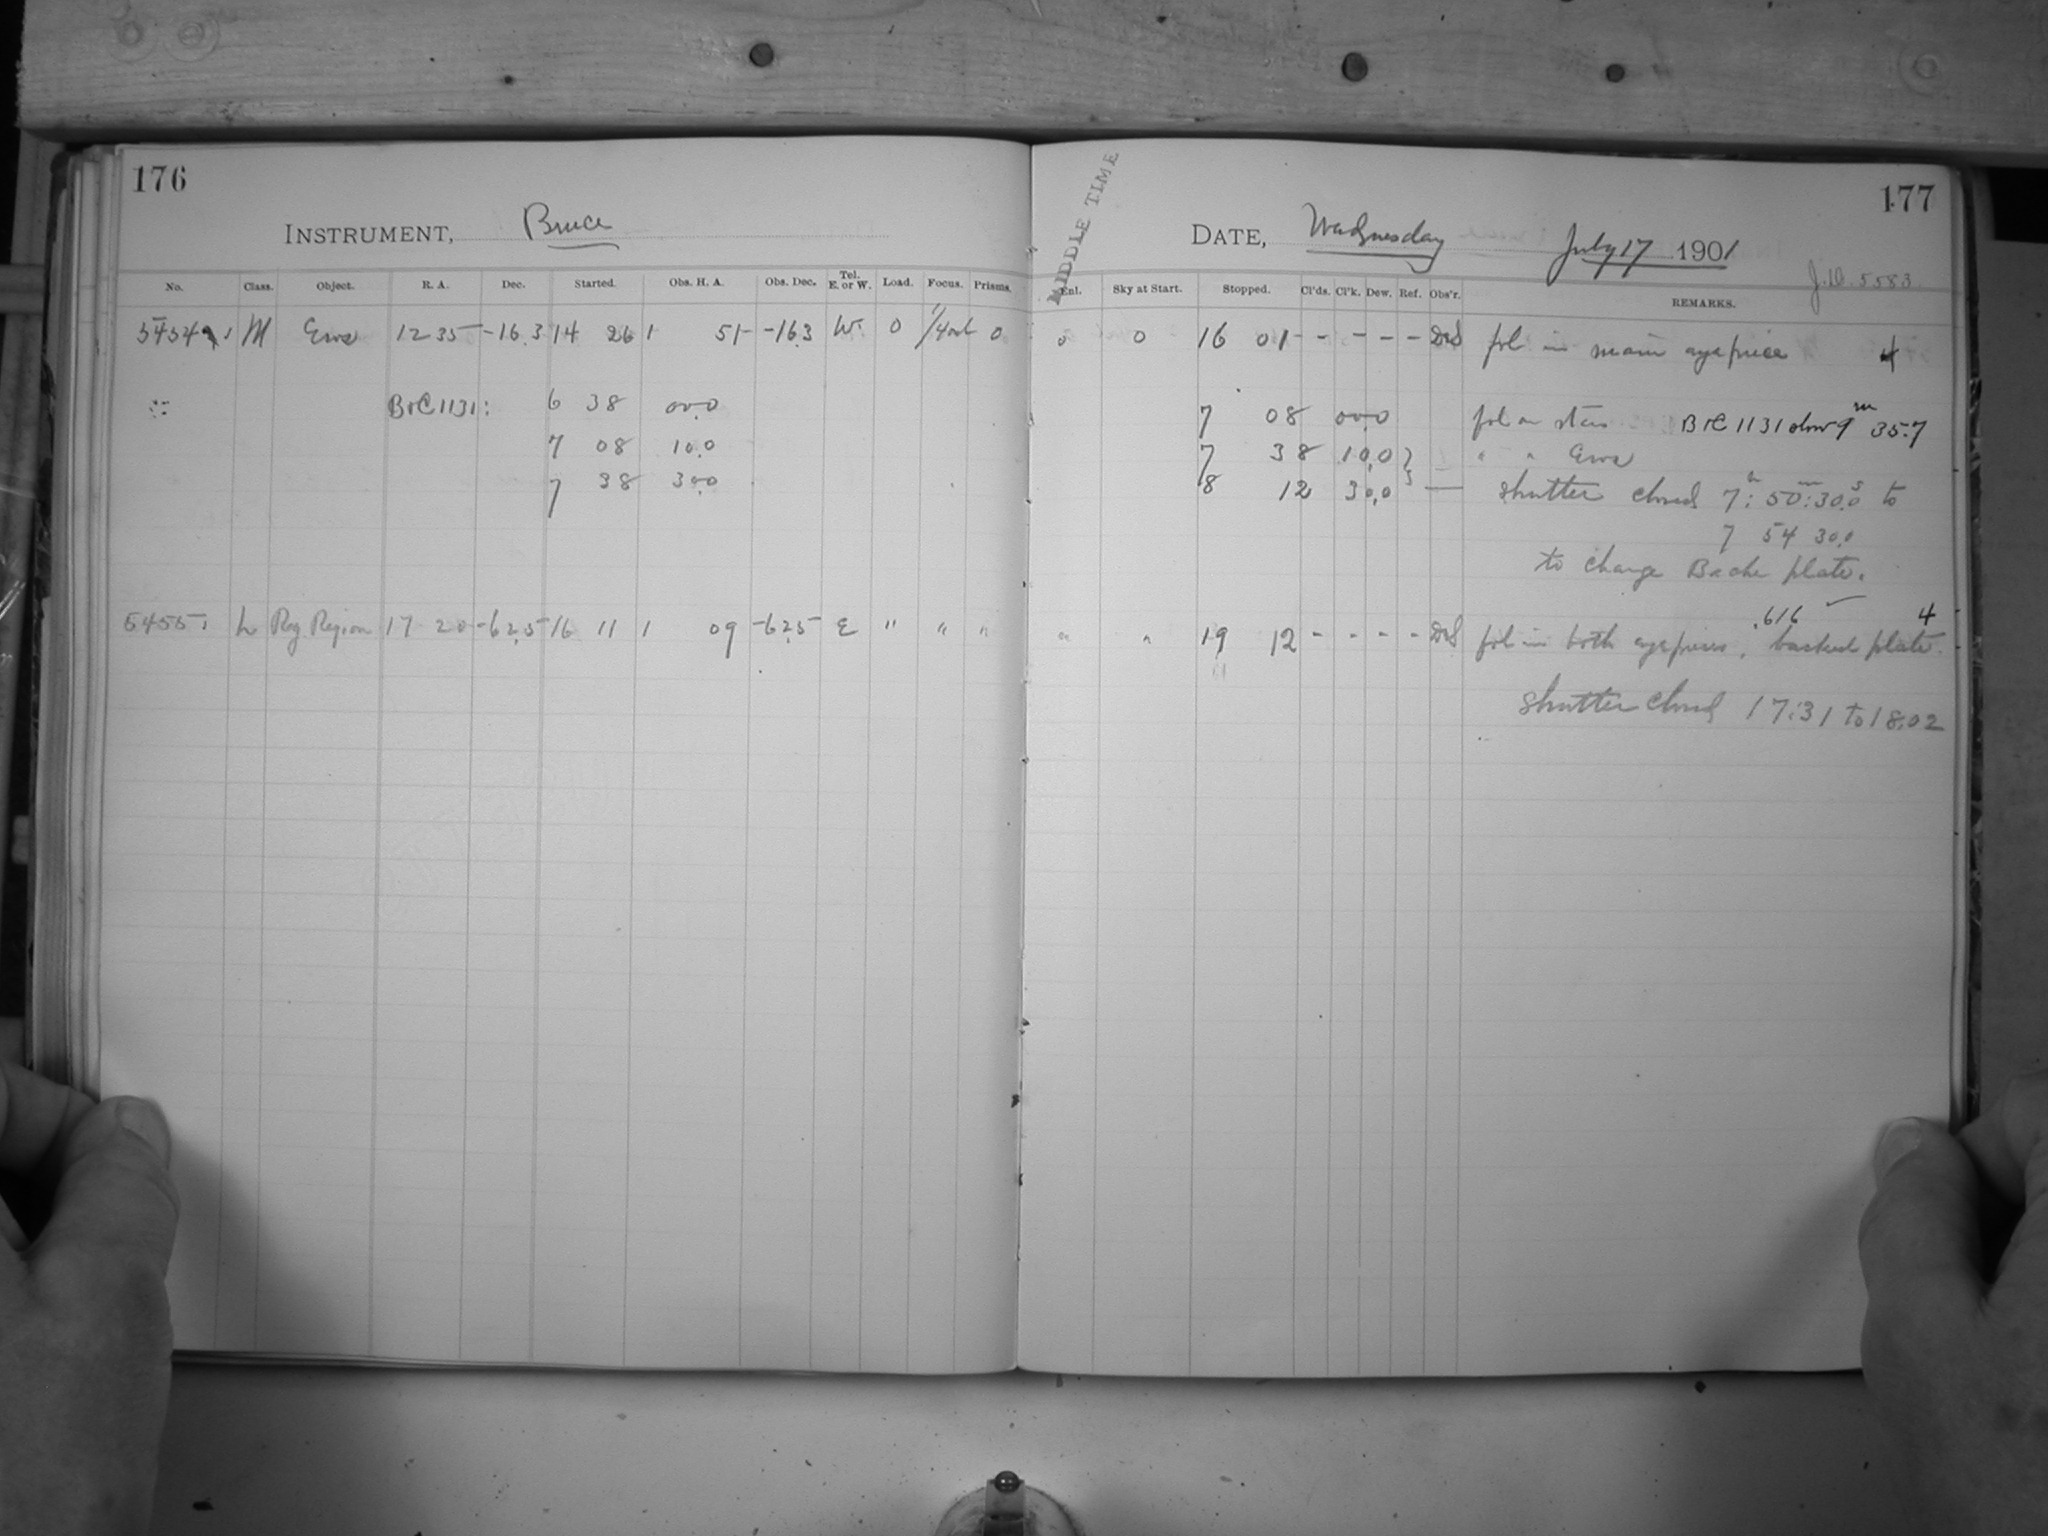 176
INSTRUMENT, Bruce
No. Class. Object. R. A. Dec. Started. Obs. H. A. Obs. Dec. Tel. E. or W. Load. Focus. Prisms.
5454 M Eros 12 35 -16.3 14 26 1 51 -16.3 W. 0 0
B+C 1131: 6 38 00.0
7 08 10.0
7 38 30.0
5455 L Reg Region 17 20 -62.5 16 11 1 09 -62.5 E " " "
MIDDLE TIME
177
DATE, Wednesday July 17 1901
J.D. 5583
Enl. Sky at Start. Stopped. Cl'ds. Cl'k. Dew. Ref. Obs'r. REMARKS.
0 0 16 01 - - - - fol in main eyepiece 4
7 08 00.0 fol on star B+C 1131 slow 9m 35.7
7 38 10.0 } " " Eros
8 12 30.0 } — shutter closed 7h: 50m: 30.0s to
7 54 30.0
to change Bache plate.
.616 ✓ 4
" " 19 12 - - - - fol in both eyepieces, backed plate.
shutter closed 17:31 to 18:02